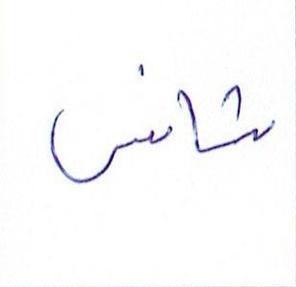 شانس